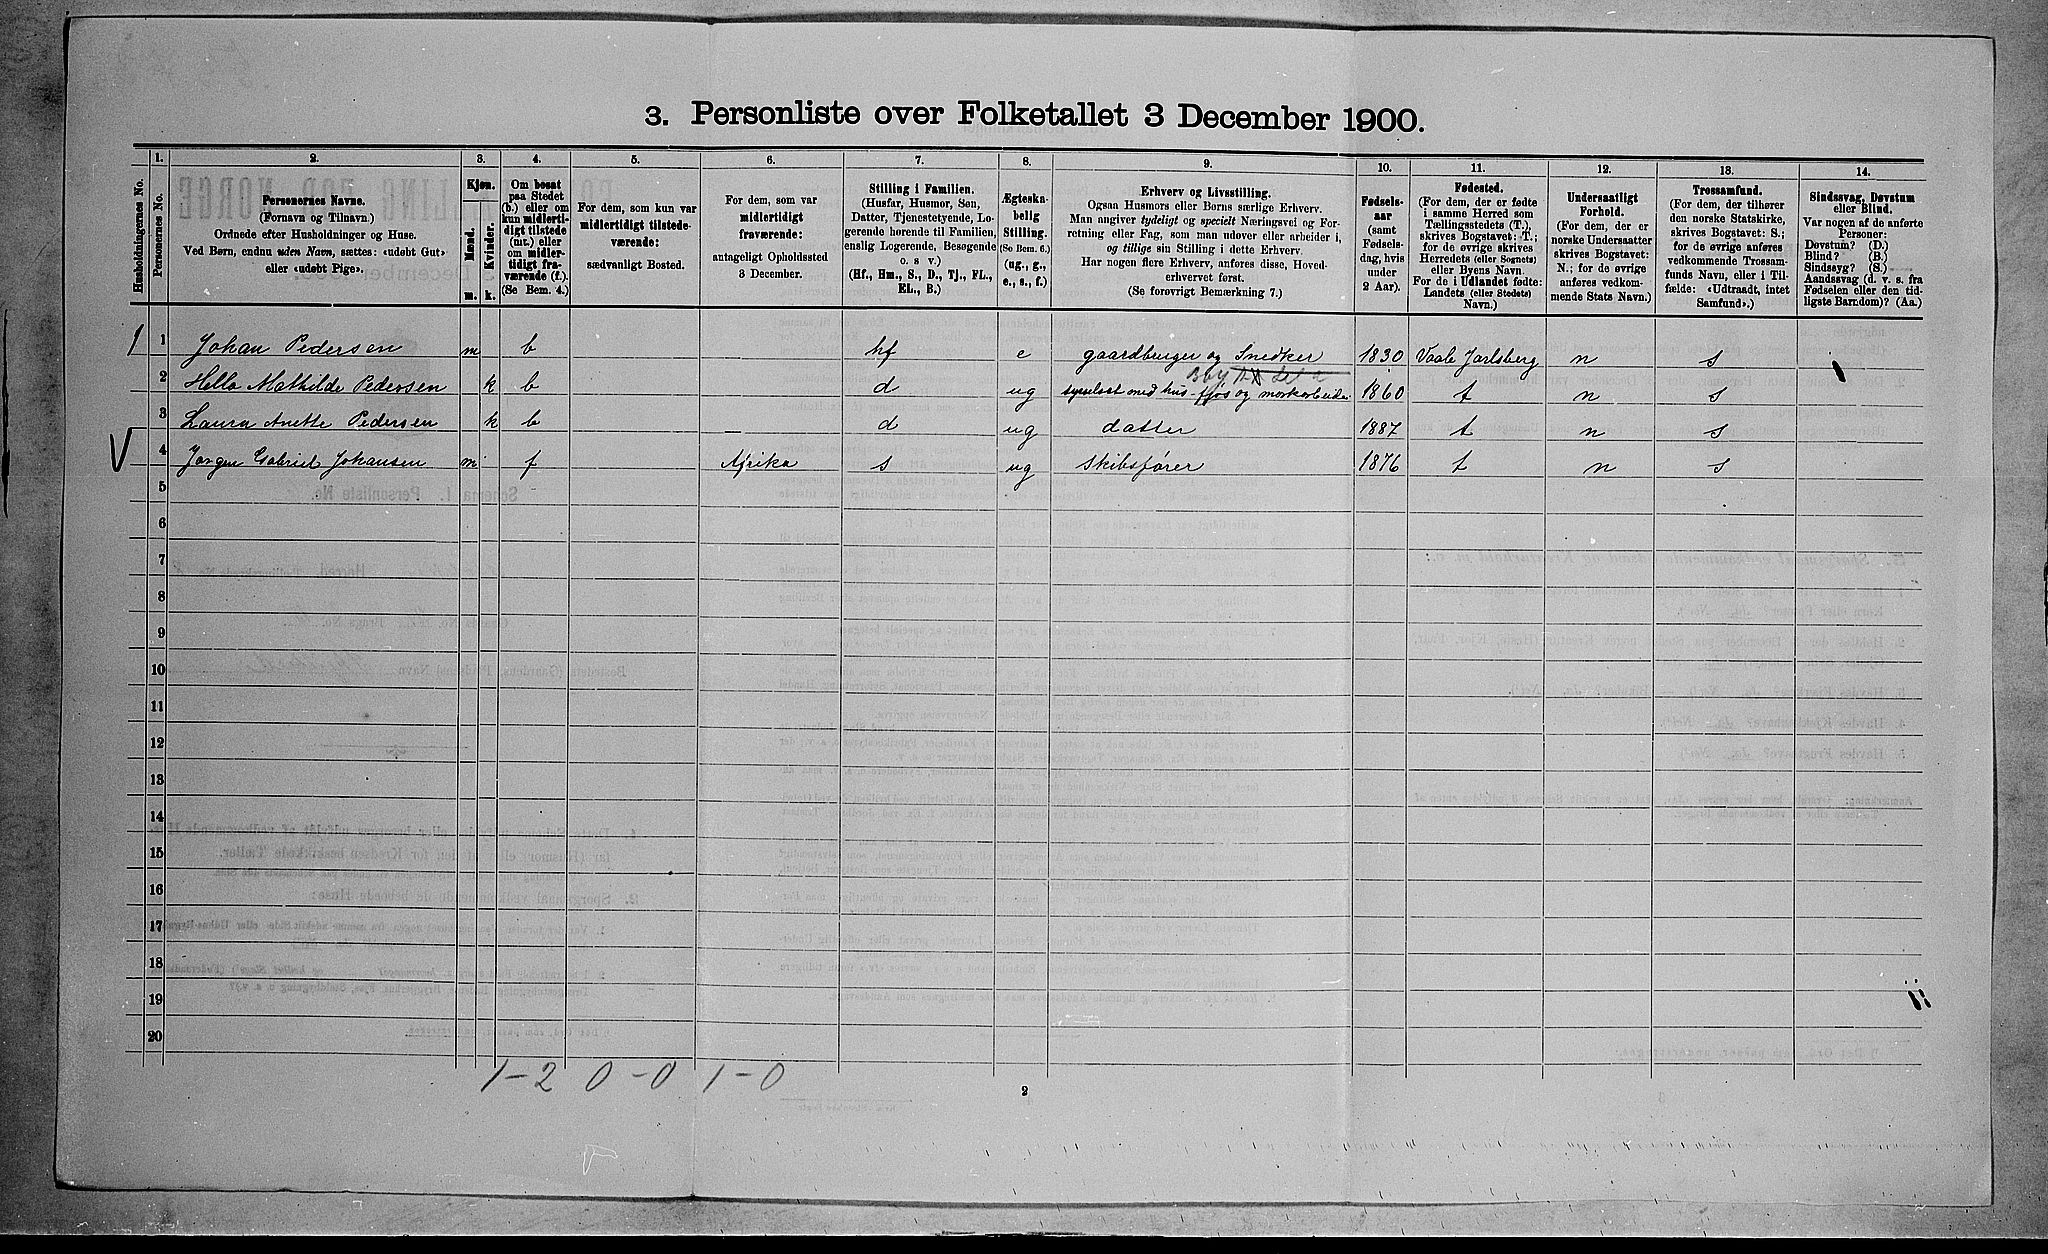 3. Personliste over Folketallet 3 December 1900.
Husholdningernes No.
1.
Personernes No.
2.
Personernes Navne.
(Fornavn og Tilnavn.)
Ordnede efter Husholdninger og Huse.
Ved Børn, endnu uden Navn, sættes: «udøbt Gut»
eller «udøbt Pige».
3.
Kjøn.
Mænd.
Kvinder.
m.
k.
4.
Om bosat
paa Stedet
(b.) eller om
kun midler-
tidigt tilstede
(mt.) eller
om midler-
tidigt fra-
værende (f.).
(Se Bem. 4.)
5.
For dem, som kun var
midlertidigt tilstede-
værende:
sædvanligt Bosted.
6.
For dem, som var
midlertidigt
fraværende:
antageligt Opholdssted
3 December.
7.
Stilling i Familien.
(Husfar, Husmor, Søn,
Datter, Tjenestetyende, Lo-
gerende hørende til Familien,
enslig Logerende, Besøgende
o. s. v.)
(Hf., Hm., S., D., Tj., FL.,
EL., B.)
8.
Ægteska-
belig
Stilling.
(Se Bem. 6.)
(ug., g.,
e., s., f.)
9.
Erhverv og Livsstilling.
Ogsaa Husmors eller Børns særlige Erhverv.
Man angiver tydeligt og specielt Næringsvei og For-
retning eller Fag, som man udøver eller arbeider i,
og tillige sin Stilling i dette Erhverv.
Har nogen flere Erhverv, anføres disse, Hoved-
erhvervet først.
(Se forøvrigt Bemærkning 7.)
10.
Fødsels-
aar
(samt
Fødsels-
dag, hvis
under
2 Aar).
11.
Fødested.
(For dem, der er fødte
i samme Herred som
Tællingsstedets (T.),
skrives Bogstavet: T.;
for de øvrige skrives
Herredets (eller Sognets)
eller Byens Navn.
For de i Udlandet fødte:
Landets (eller Stedets)
Navn.)
12.
Undersaatligt
Forhold.
(For dem, der er
norske Undersaatter
skrives Bogstavet:
N.; for de øvrige
anføres vedkom-
mende Stats Navn.)
13.
Trossamfund.
(For dem, der tilhører
den norske Statskirke,
skrives Bogstavet: S.;
for de øvrige anføres
vedkommende Trossam-
funds Navn, eller i Til-
fælde: «Udtraadt, intet
Samfund».)
14.
Sindssvag, Døvstum
eller Blind.
Var nogen af de anførte
Personer:
Døvstum? (D.)
Blind? (B.)
Sindssyg? (S.)
Aandssvag (d. v. s. fra
Fødselen eller den tid-
ligste Barndom)? (Aa.)
1 1 Johan Pedersen m b hf e gaardbruger og Snedker 1830 Vaale Jarlsberg n s
2 Hella Mathilde Pedersen k b d ug sysselsat med hus- fjøs og markarbeide 1860 t n s
3 Laura Anette Pedersen k b d ug datter 1887 t n s
V 4 Jørgen Gabriel Johansen m f Afrika s ug Skibsfører 1876 t n s
5
6
7
8
9
10
11
12
13
14
15
16
17
18
19
20
1-2 0-0 1-0
2